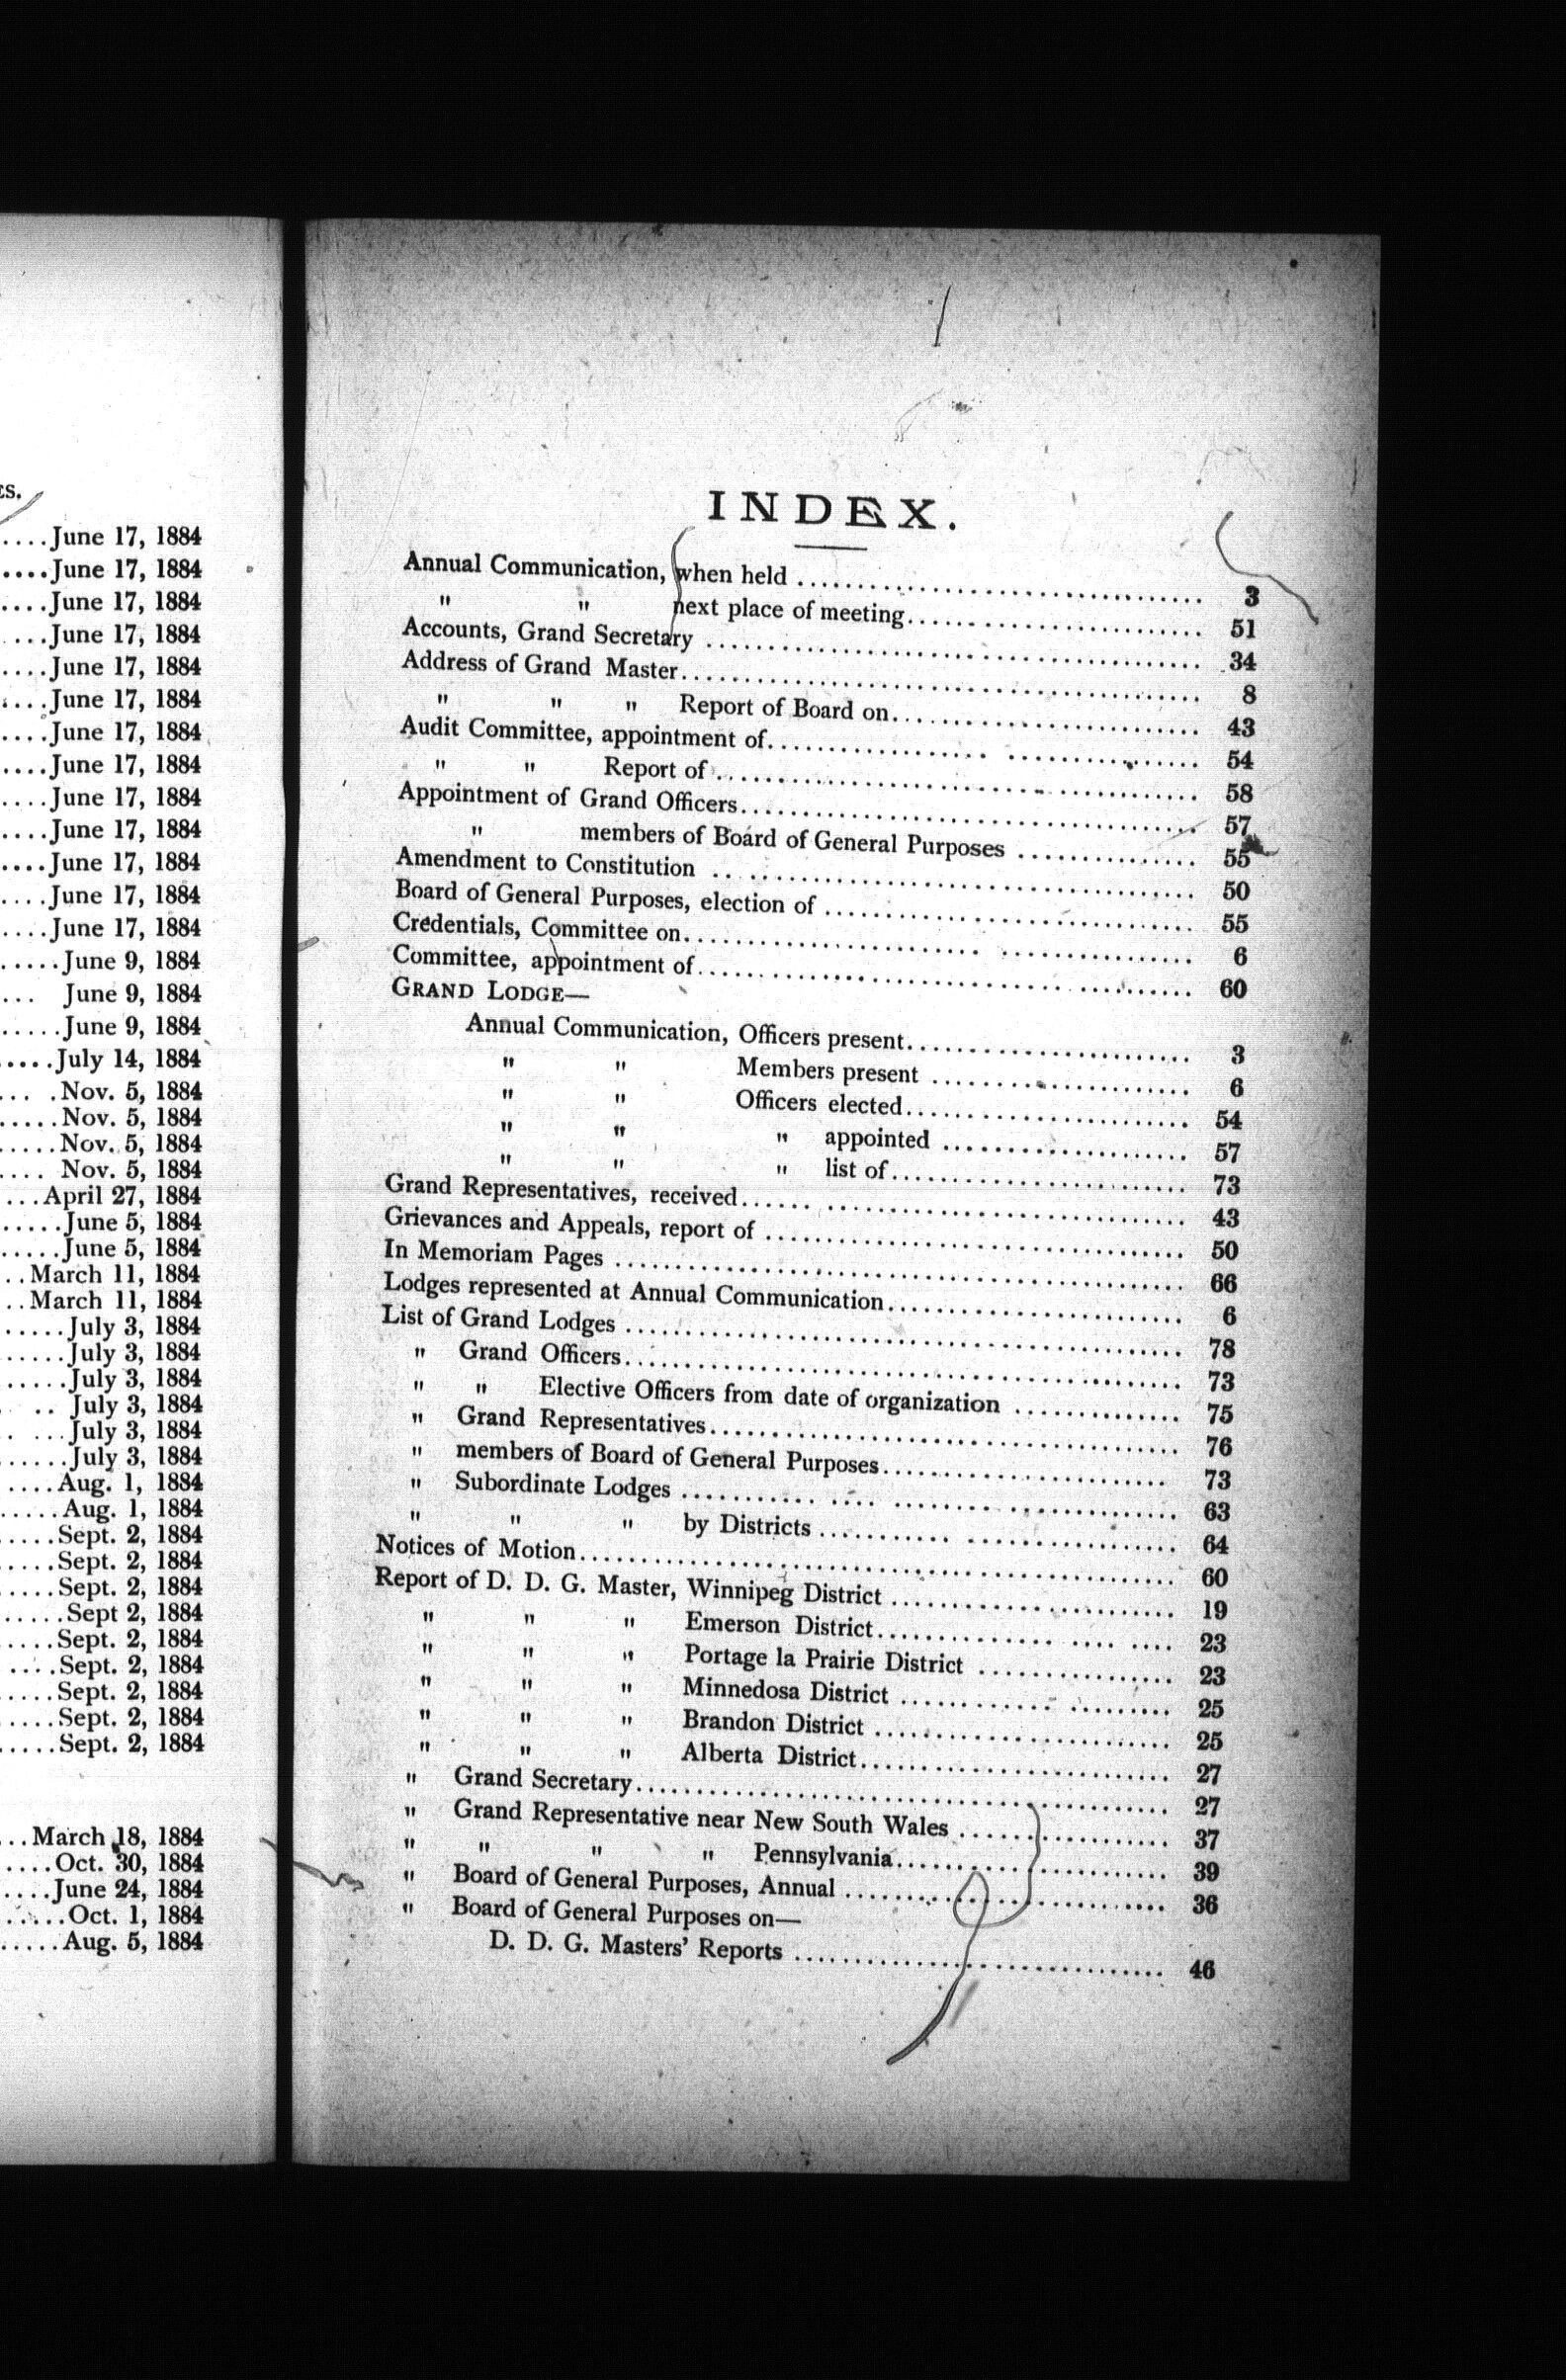 ES.
....June 17, 1884
....June 17, 1884
....June 17, 1884
....June 17, 1884
....June 17, 1884
....June 17, 1884
....June 17, 1884
....June 17, 1884
....June 17, 1884
....June 17, 1884
....June 17, 1884
....June 17, 1884
....June 17, 1884
.....June 9, 1884
... June 9, 1884
......June 9, 1884
.....July 14, 1884
... .Nov. 5, 1884
.....Nov. 5, 1884
.....Nov. 5, 1884
.... Nov. 5, 1884
...April 27, 1884
.....June 5, 1884
.....June 5, 1884
..March 11, 1884
..March 11, 1884
.....July 3, 1884
......July 3, 1884
......July 3, 1884
. .. July 3, 1884
.. ...July 3, 1884
......July 3, 1884
....Aug. 1, 1884
.....Aug. 1, 1884
.....Sept. 2, 1884
.....Sept. 2, 1884
.....Sept. 2, 1884
......Sept 2, 1884
.....Sept. 2, 1884
....Sept. 2, 1884
.....Sept. 2, 1884
.....Sept. 2, 1884
.....Sept. 2, 1884
..March 18, 1884
....Oct. 30, 1884
....June 24, 1884
......Oct. 1, 1884
.....Aug. 5, 1884
INDEX.
Annual Communication, when held .................................. 3
" " next place of meeting........................ 51
Accounts, Grand Secretary ........................................ 34
Address of Grand Master........................................... 8
" " " Report of Board on......................... 43
Audit Committee, appointment of.................. ................ 54
" " Report of ....................................... 58
Appointment of Grand Officers..................................... 57
" members of Board of General Purposes ............... 55
Amendment to Constitution .. ..................................... 50
Board of General Purposes, election of ............................... 55
Credentials, Committee on........................ ................ 6
Committee, appointment of............................... .......... 60
GRAND LODGE—
Annual Communication, Officers present....................... 3
" " Members present ..................... 6
" " Officers elected....................... 54
" " " appointed .................... 57
" " " list of........................ 73
Grand Representatives, received...... ............................. 43
Grievances and Appeals, report of .................................. 50
In Memoriam Pages .............................................. 66
Lodges represented at Annual Communication........................ 6
List of Grand Lodges ............................................. 78
" Grand Officers............................................. 73
" " Elective Officers from date of organization .............. 75
" Grand Representatives...................................... 76
" members of Board of General Purposes....................... 73
" Subordinate Lodges ........... .... ........ .............. 63
" " " by Districts ........... ................. 64
Notices of Motion................................................ 60
Report of D. D. G. Master, Winnipeg District ....................... 19
" " " Emerson District............... .... .... 23
" " " Portage la Prairie District ................ 23
" " " Minnedosa District ............ ......... 25
" " " Brandon District ........................ 25
" " " Alberta District......................... 27
" Grand Secretary............................................ 27
" Grand Representative near New South Wales .................. 37
" " " " Pennsylvania...................... 39
" Board of General Purposes, Annual .......................... 36
" Board of General Purposes on—
D. D. G. Masters' Reports .............................. 46